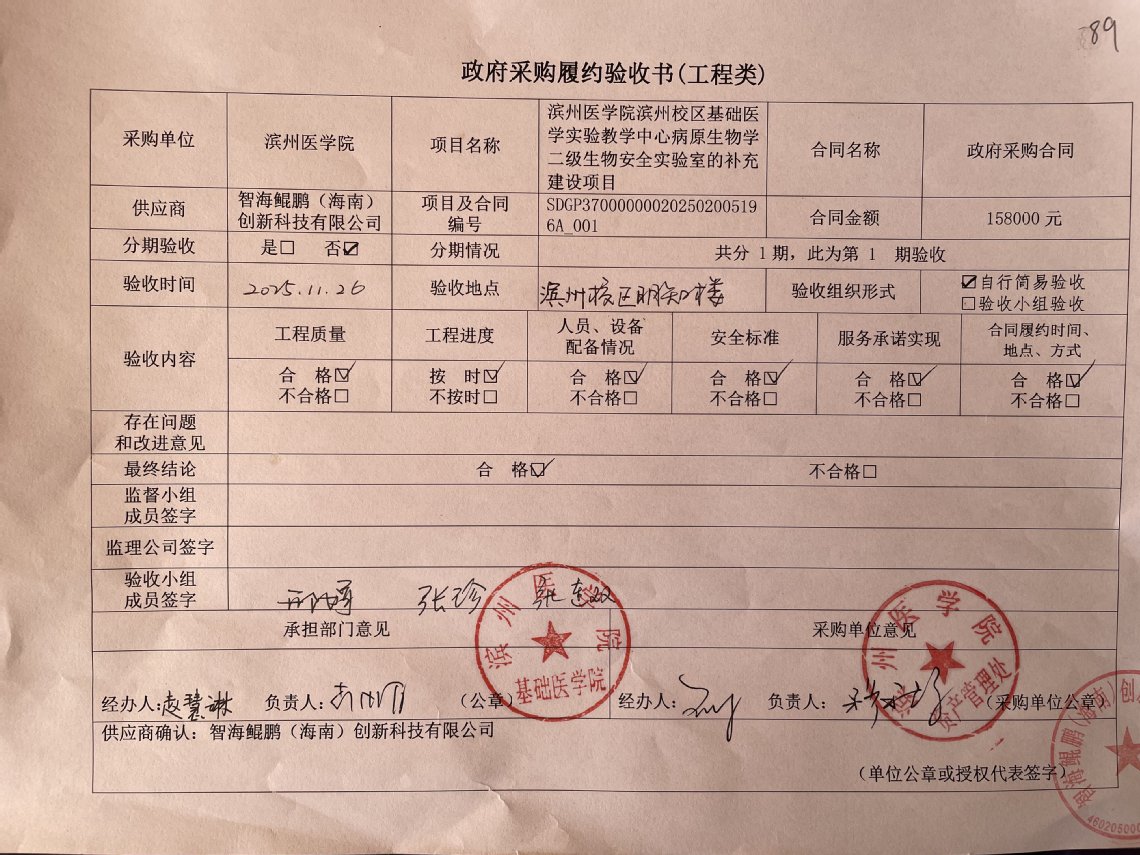 89
政府采购履约验收书(工程类)
采购单位
滨州医学院
项目名称
滨州医学院滨州校区基础医
学实验教学中心病原生物学
二级生物安全实验室的补充
建设项目
合同名称
政府采购合同
供应商
智海鲲鹏（海南）
创新科技有限公司
项目及合同
编号
SDGP3700000002025020051​9
6A_001
合同金额
158000 元
分期验收
是□ 否☑
分期情况
共分 1 期，此为第 1 期验收
验收时间
2025.11.26
验收地点
滨州校区 楼
验收组织形式
☑自行简易验收
□验收小组验收
验收内容
工程质量
工程进度
人员、设备
配备情况
安全标准
服务承诺实现
合同履约时间、
地点、方式
合 格☑
不合格□
按 时☑
不按时□
合 格☑
不合格□
合 格☑
不合格□
合 格☑
不合格□
合 格☑
不合格□
存在问题
和改进意见
最终结论
合 格☑
不合格□
监督小组
成员签字
监理公司签字
验收小组
成员签字
张珍
承担部门意见
采购单位意见
滨州医学院
基础医学院
滨州医学院
资产管理处
经办人:赵慧琳 负责人: （公章）
经办人: 负责人: （采购单位公章）
供应商确认：智海鲲鹏（海南）创新科技有限公司
（单位公章或授权代表签字）
智海鲲鹏(海南)创
460205000